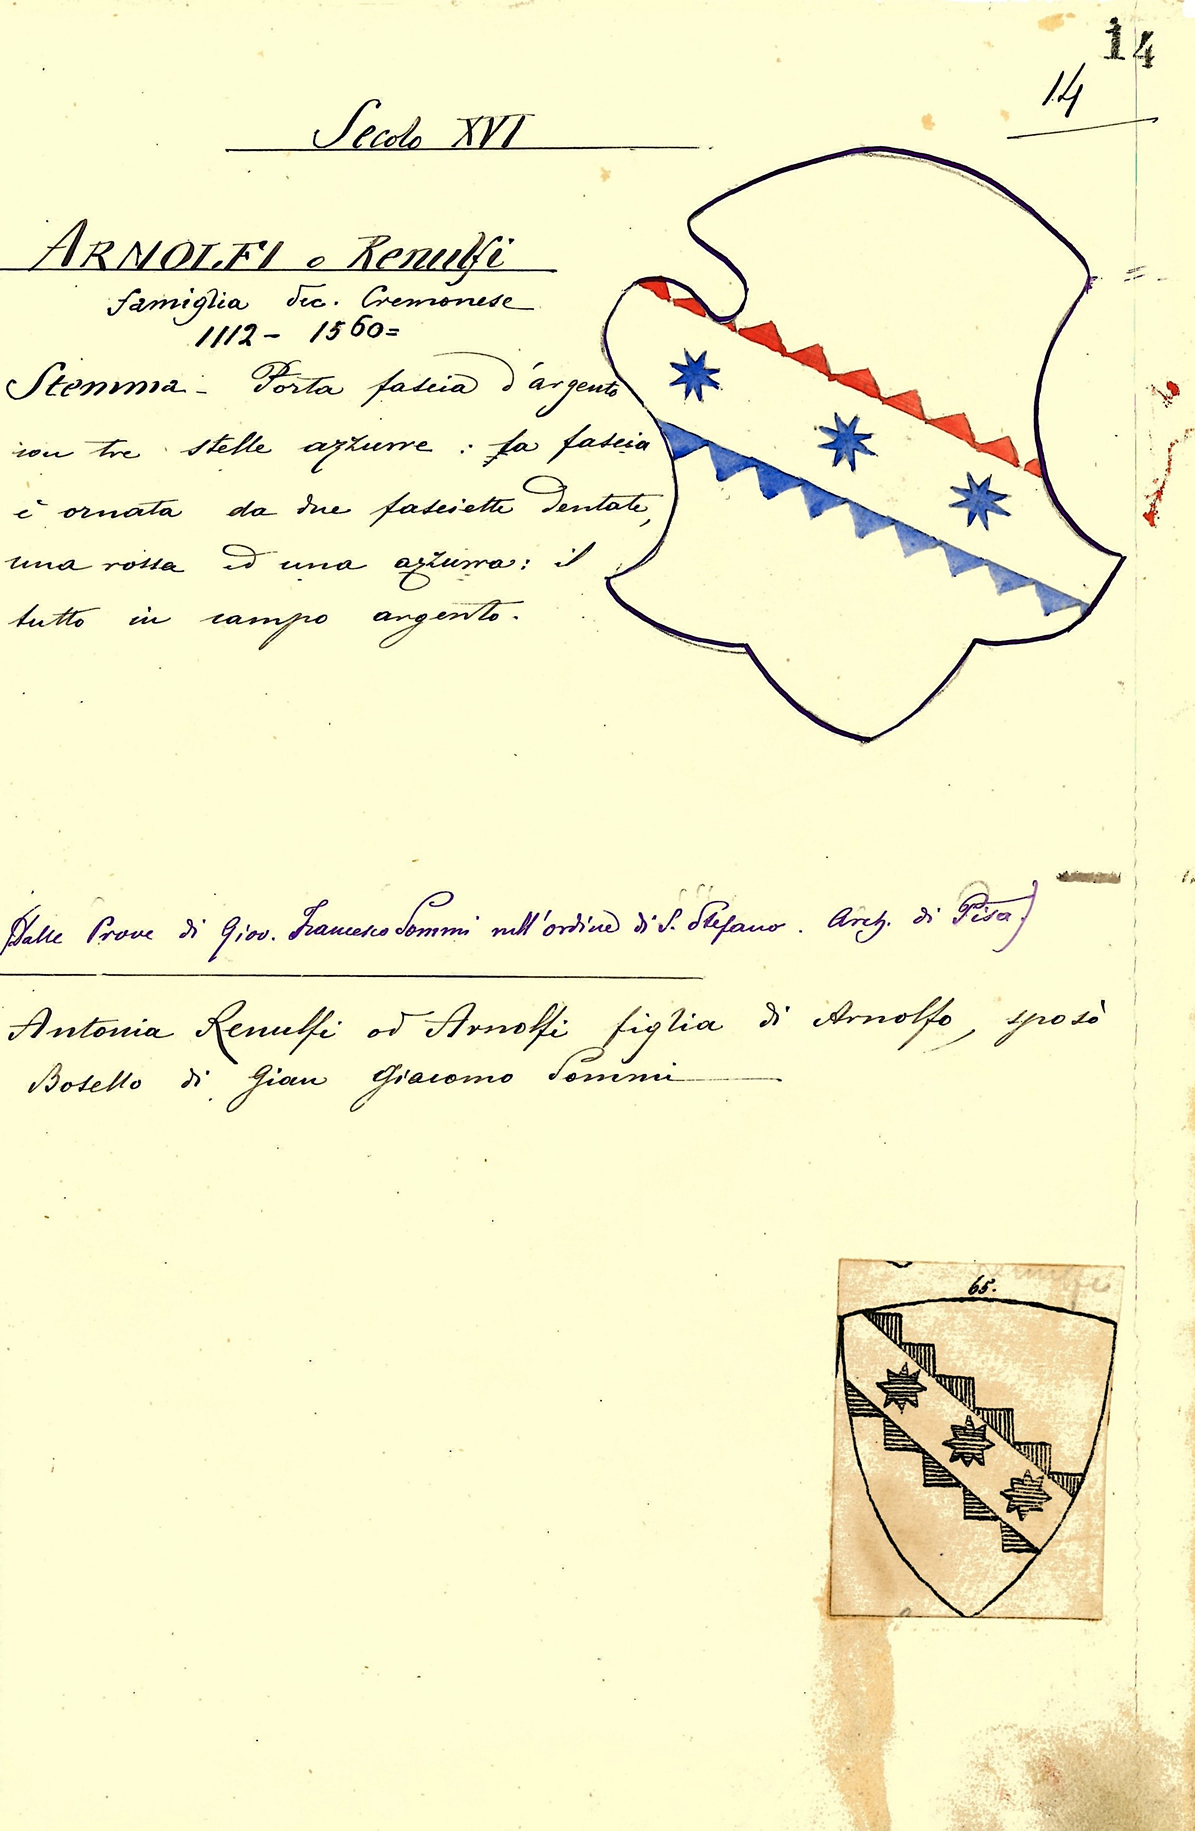 14
14
Secolo XVI
ARNOLFI o Renulfi
famiglia dec. Cremonese
1112 - 1560=
Stemma - Porta fascia d'argento
con tre stelle azzurre : la fascia
è ornata da due fasciette dentate,
una rossa ed una azzurra: il
tutto in campo argento.
(Dalle Prove di Giov. Francesco Sommi nell'ordine di S. Stefano. Arch. di Pisa)
Antonia Renulfi od Arnolfi figlia di Arnolfo, sposò
Bosello di Gian Giacomo Sommi
65.